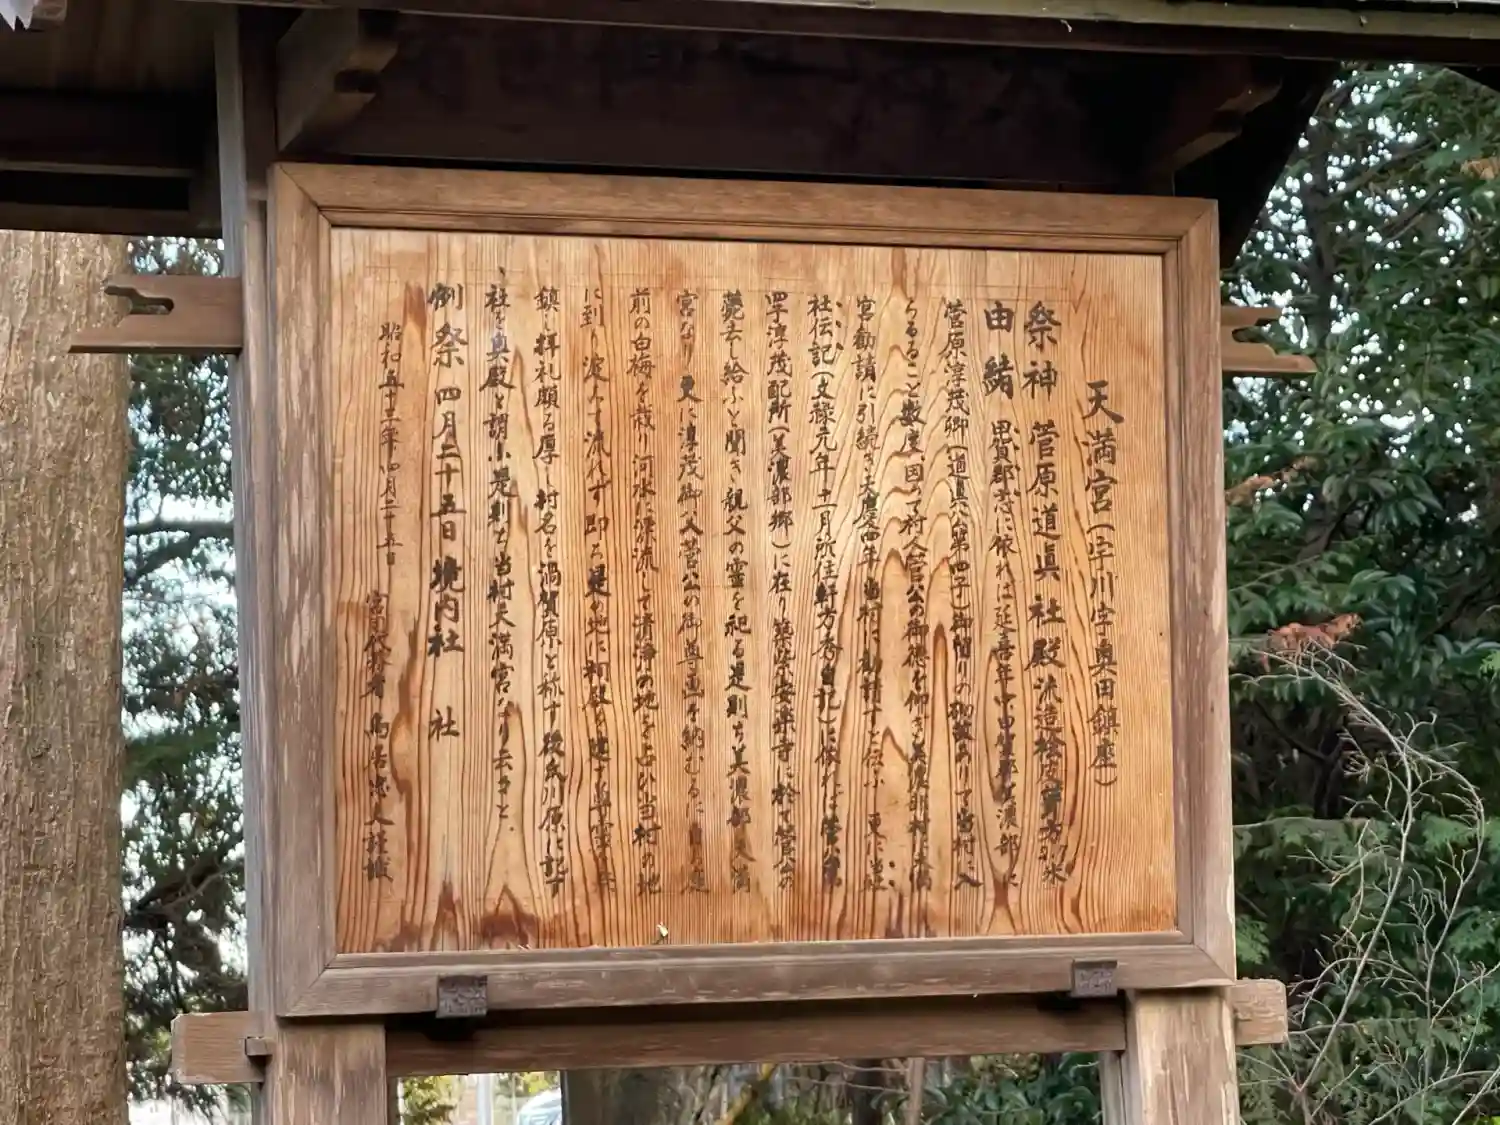 天満宮(字川字奥田鎮座)
祭神 菅原道眞 社殿流造桧皮葺方
由緒 甲賀郡志に依れば延喜年中甲賀郡美濃部に
菅原淳茂卿(道真公第四子)御閑りの御故ありて当村に入
らるること数度因って村人官公の御徳を仰ぎ美濃部村天満
宮勧請に引続き天慶四年当村に勧請すと伝ふ 更に当社
社伝記(文禄元年十一月所住軒方秀自記)に依れば菅公第
四子淳茂配所(美濃部郷)に在り築紫安楽寺に於て菅公の
薨去し給ふと聞き親父の霊を祀る是則ち美濃部天満
宮なり更に淳茂御父菅公の御尊画を納むるに
前の白梅を栽り河水に漂流して清浄の地を占ひ当村の地
に到り渡んで流れず即ち是の地に祠殿を建す尊霊を
鎮し拝礼願る厚し村名を渦賀原と称す後氏川原に記す
社を奥殿と調ふ是則ち当村天満宮なり云々と.
例祭 四月二十五日 境内社 社
昭和五十三年四月二十五日 宮司代務者 鳥居忠人謹識